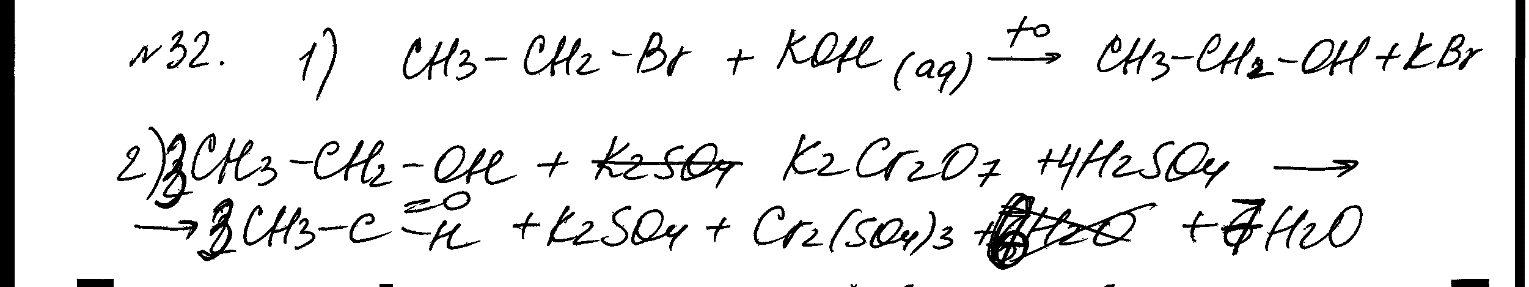 №32. 1) CH3-CH2-Br + KOH (aq) t° → CH3-CH2-OH + KBr
2) 3CH3-CH2-OH + K2SO4 K2Cr2O7 + 4H2SO4 →
→ 3CH3-C=O-H + K2SO4 + Cr2(SO4)3 + H2O + 7H2O